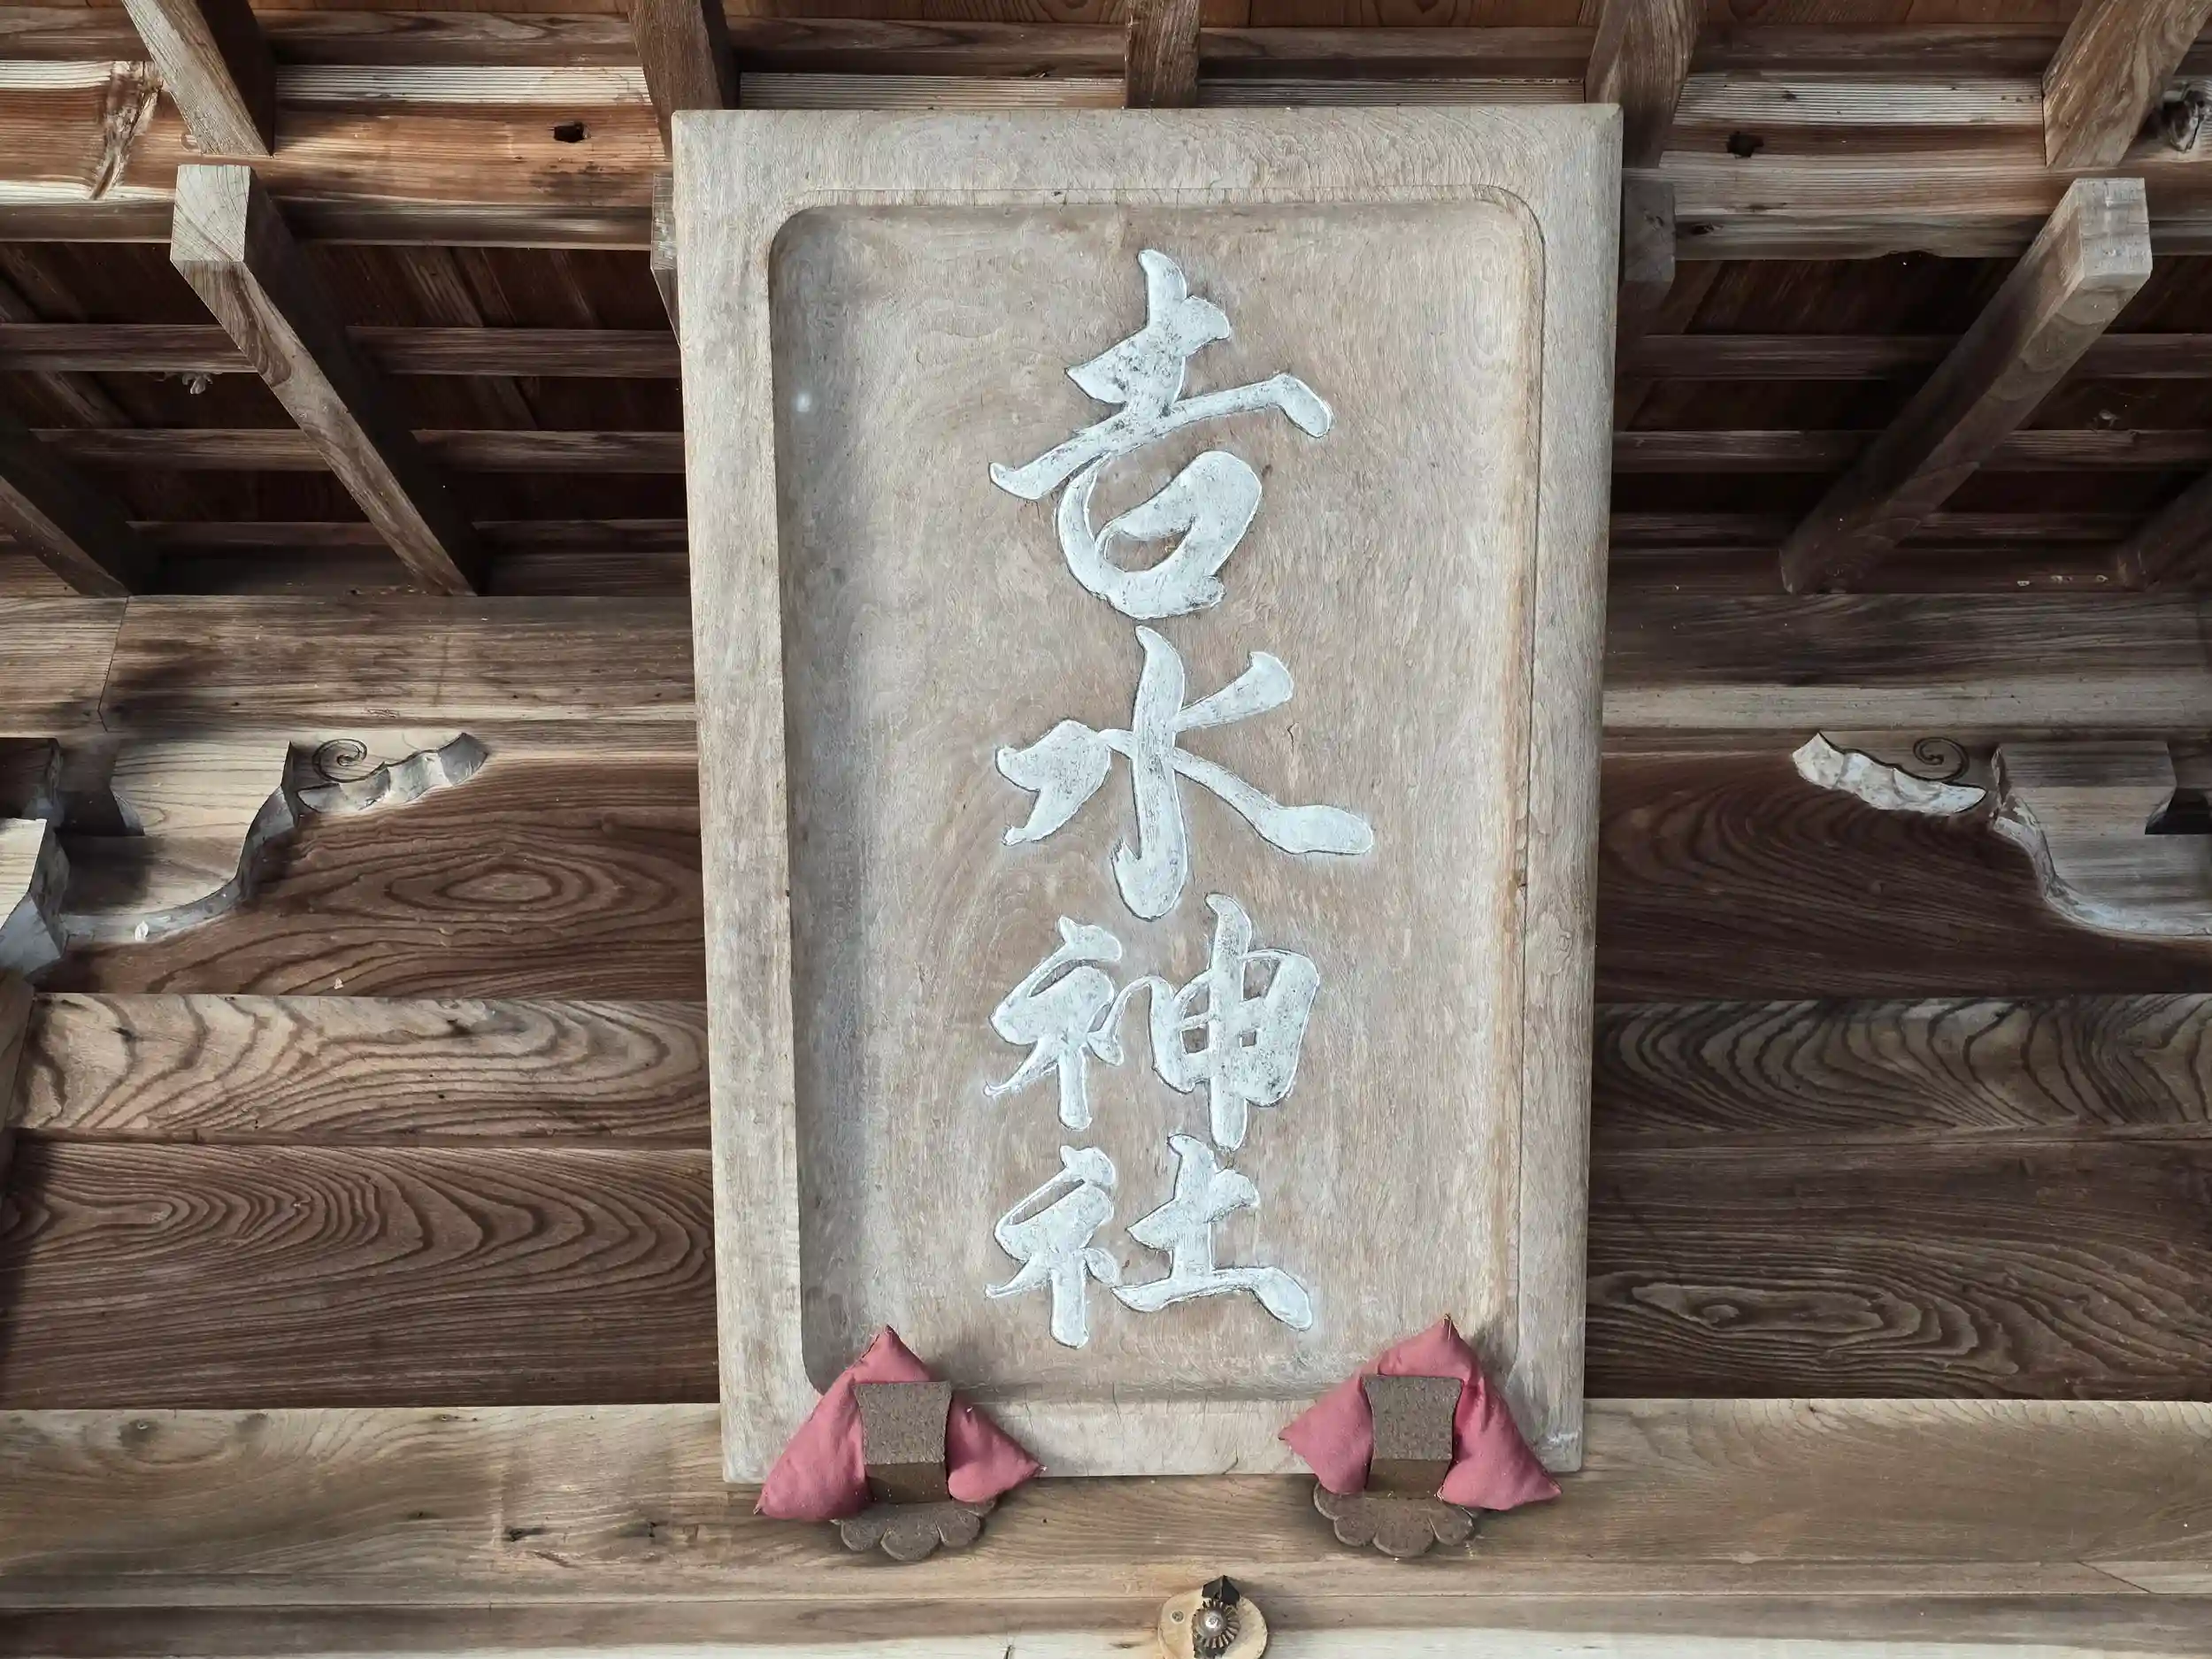 吉水神社